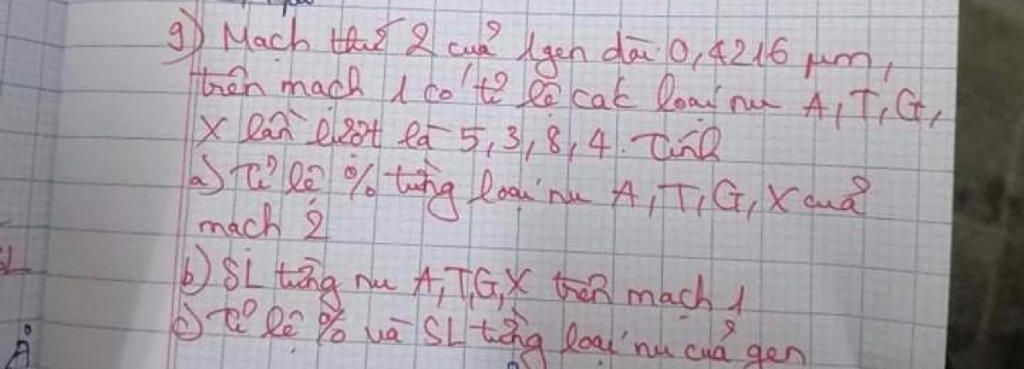 g) Mạch thứ 2 của 1 gen dài 0,4216 µm,
trên mạch 1 có tỉ lệ các loại nu A, T, G,
X lần lượt là 5, 3, 8, 4. Tính
a) Tỉ lệ % từng loại nu A, T, G, X của
mạch 2
b) SL từng nu A, T, G, X trên mạch 1
c) Tỉ lệ % và SL từng loại nu của gen